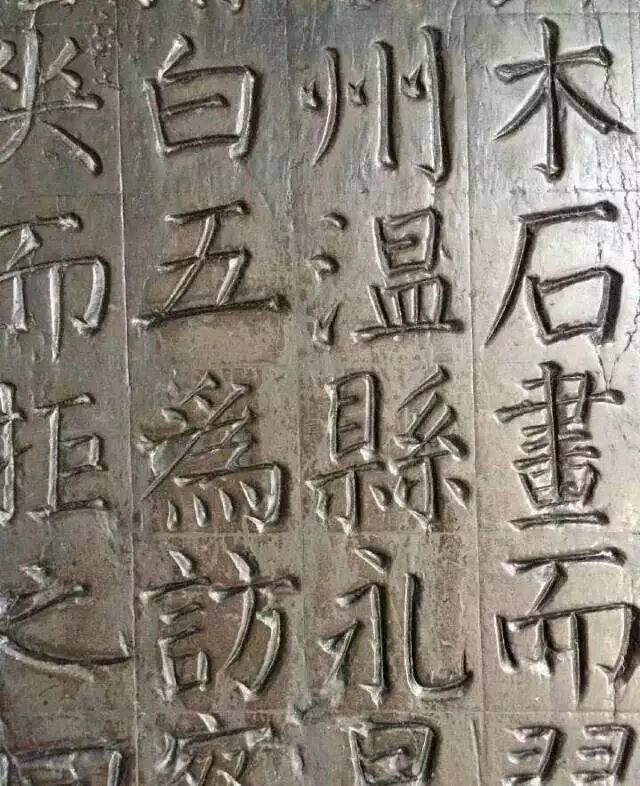 木石畫而
州温縣礼
白五為訪
夾而拒之